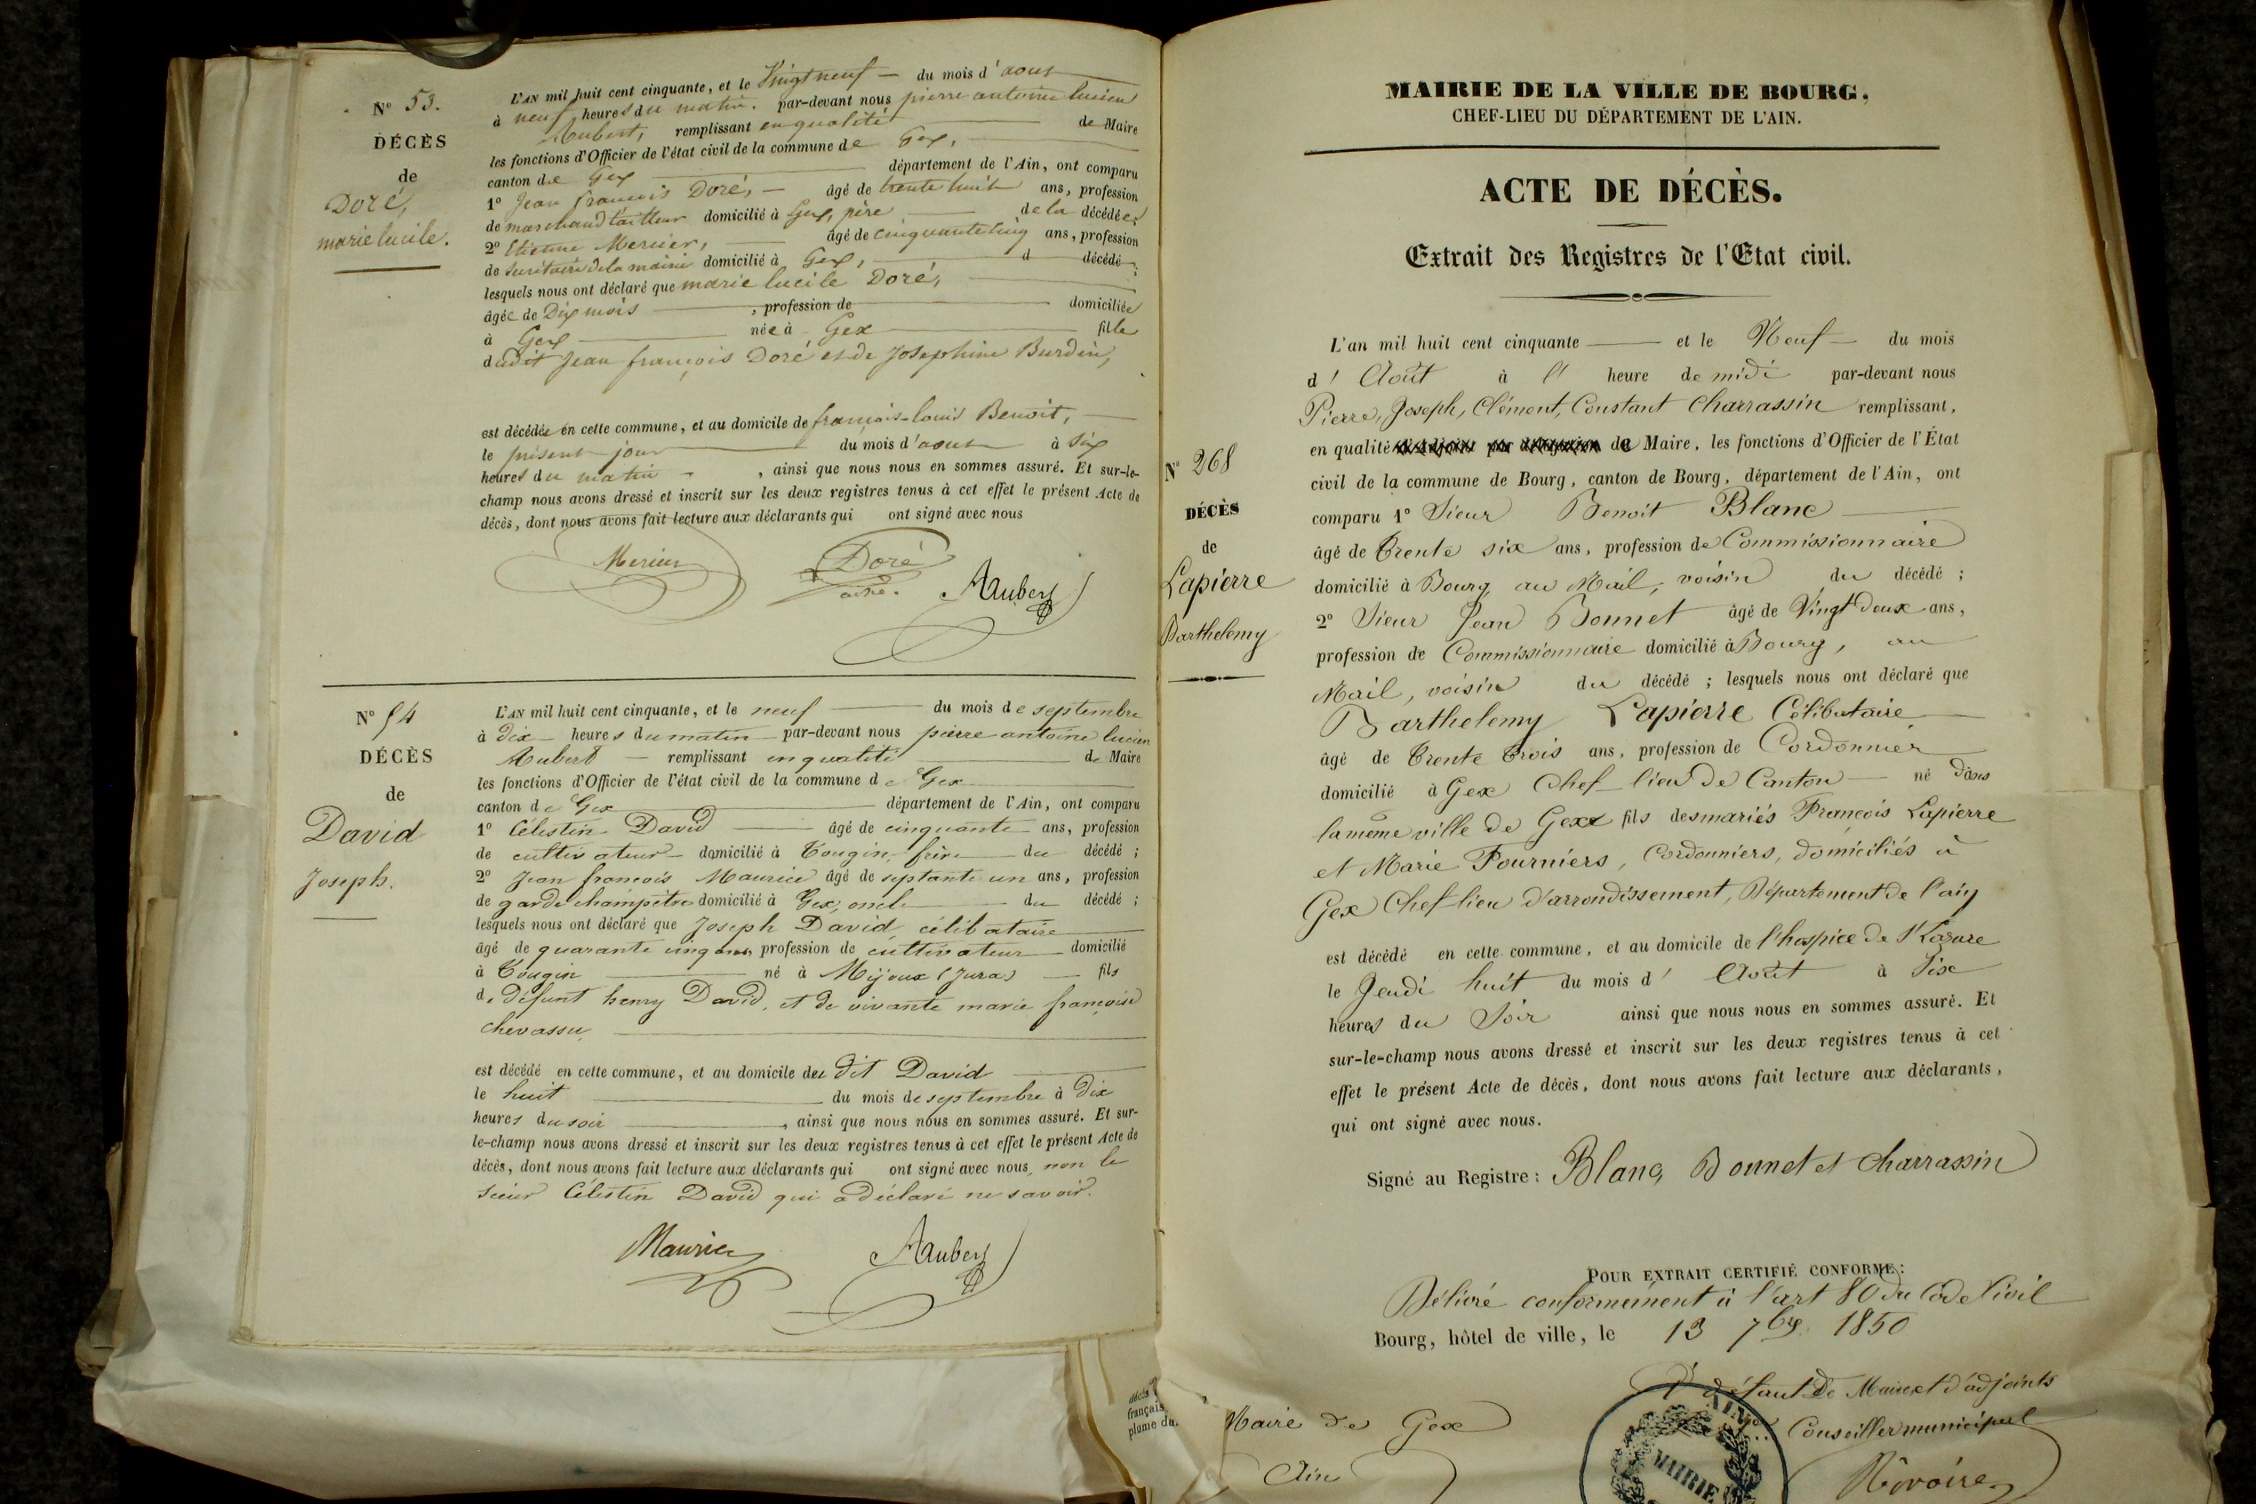 N° 53.
DÉCÈS
de
Doré,
marie lucile.
L'AN mil huit cent cinquante, et le Vingt neuf du mois d'aout
à neuf heures du matin. par-devant nous pierre antoine lucien
Aubert, remplissant en qualité de Maire
les fonctions d'Officier de l'état civil de la commune de Gex,
canton de Gex département de l'Ain, ont comparu
1° Jean françois Doré, âgé de trente huit ans, profession
de marchand tailleur domicilié à Gex, père de la décédée;
2° Etienne Mercier, âgé de cinquante cinq ans, profession
de secrétaire de la mairie domicilié à Gex, d décédé ;
lesquels nous ont déclaré que marie lucile Doré,
âgée de Dix mois , profession de domiciliée
à Gex née à Gex fille
dudit Jean françois Doré et de Josephine Burdin,
est décédée en cette commune, et au domicile de françois-louis Benoit,
le présent jour du mois d'aout à six
heures du matin , ainsi que nous nous en sommes assuré. Et sur-le-
champ nous avons dressé et inscrit sur les deux registres tenus à cet effet le présent Acte de
décès, dont nous avons fait lecture aux déclarants qui ont signé avec nous
Mercier Doré aîné. Aubert
N° 54
DÉCÈS
de
David
Joseph.
L'AN mil huit cent cinquante, et le neuf du mois de septembre
à dix heures du matin par-devant nous pierre antoine lucien
Aubert remplissant en qualité de Maire
les fonctions d'Officier de l'état civil de la commune de Gex
canton de Gex département de l'Ain, ont comparu
1° Célestin David âgé de cinquante ans, profession
de cultivateur domicilié à Tougin, frère du décédé ;
2° Jean françois Maurice âgé de septante un ans, profession
de garde champêtre domicilié à Gex, oncle du décédé ;
lesquels nous ont déclaré que Joseph David célibataire
âgé de quarante cinq ans, profession de cultivateur domicilié
à Tougin né à Mijoux (Jura) fils
de défunt henry David, et de vivante marie françoise
chevassu,
est décédé en cette commune, et au domicile du dit David
le huit du mois de septembre à dix
heures du soir , ainsi que nous nous en sommes assuré. Et sur-
le-champ nous avons dressé et inscrit sur les deux registres tenus à cet effet le présent Acte de
décès, dont nous avons fait lecture aux déclarants qui ont signé avec nous, non le
sieur Célestin David qui a déclaré ne savoir.
Maurice Aubert
MAIRIE DE LA VILLE DE BOURG,
CHEF-LIEU DU DÉPARTEMENT DE L'AIN.
ACTE DE DÉCÈS.
Extrait des Registres de l'Etat civil.
N° 268
DÉCÈS
de
Lapierre
Barthelemy
L'an mil huit cent cinquante et le Neuf du mois
d'Août à l'heure de midi par-devant nous
Pierre, Joseph, Clément, Constant Charrassin remplissant,
en qualité d'adjoint par délégation de Maire, les fonctions d'Officier de l'État
civil de la commune de Bourg, canton de Bourg, département de l'Ain, ont
comparu 1° Sieur Benoit Blanc
âgé de Trente six ans, profession de Commissionnaire
domicilié à Bourg au Mail, voisin du décédé ;
2° Sieur Jean Bonnet âgé de Vingt deux ans,
profession de Commissionnaire domicilié à Bourg, au
Mail, voisin du décédé ; lesquels nous ont déclaré que
Barthelemy Lapierre Célibataire
âgé de Trente Trois ans, profession de Cordonnier
domicilié à Gex Chef lieu de Canton né dans
la même ville de Gex fils des mariés François Lapierre
et Marie Fourniers, Cordonniers, domiciliés à
Gex Chef lieu d'arrondissement, Département de l'ain
est décédé en cette commune, et au domicile de l'hospice de St Lazare
le Jeudi huit du mois d'Août à Six
heures du Soir ainsi que nous nous en sommes assuré. Et
sur-le-champ nous avons dressé et inscrit sur les deux registres tenus à cet
effet le présent Acte de décès, dont nous avons fait lecture aux déclarants,
qui ont signé avec nous.
Signé au Registre : Blanc, Bonnet et Charrassin
POUR EXTRAIT CERTIFIÉ CONFORME :
Délivré conformément à l'art 80 du Code Civil
Bourg, hôtel de ville, le 13 7bre 1850
A défaut de Maire et d'adjoints
Conseiller municipal
Mairie de Gex
Ain
AIN
MAIRIE
décès
français
plume du